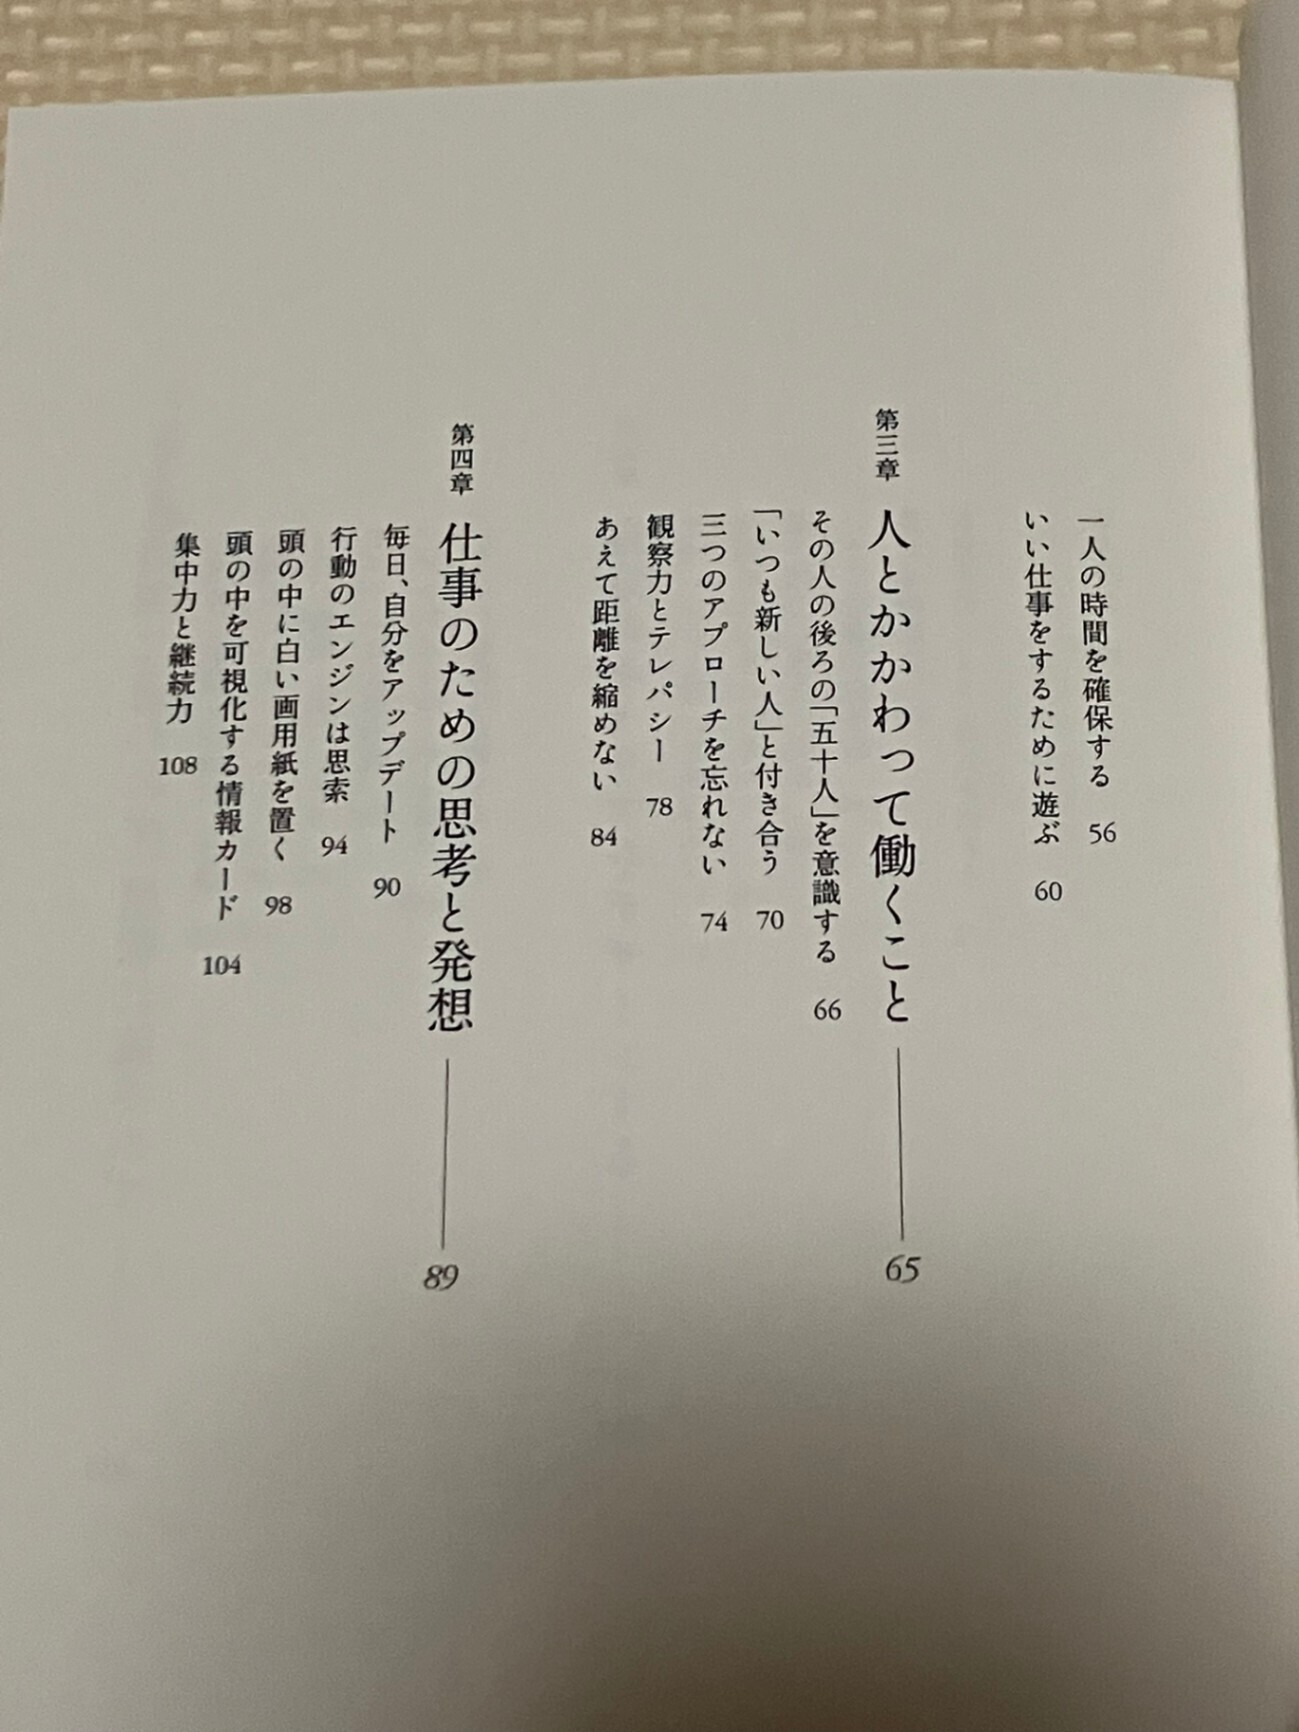 一人の時間を確保する 56
いい仕事をするために遊ぶ 60
第三章 人とかかわって働くこと 65
その人の後ろの「五十人」を意識する 66
「いつも新しい人」と付き合う 70
三つのアプローチを忘れない 74
観察力とテレパシー 78
あえて距離を縮めない 84
第四章 仕事のための思考と発想 89
毎日、自分をアップデート 90
行動のエンジンは思索 94
頭の中に白い画用紙を置く 98
頭の中を可視化する情報カード 104
集中力と継続力 108